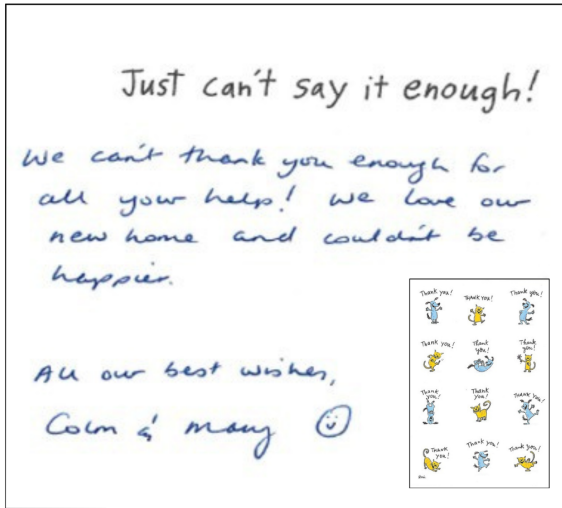 Just can't say it enough!
We can't thank you enough for
all your help! We love our
new home and couldn't be
happier.
All our best wishes,
Colm &
Thank you! Thank you! Thank you!
Thank you! Thank you! Thank you!
Thank you! Thank you! Thank you!
Thank you! Thank you! Thank you!